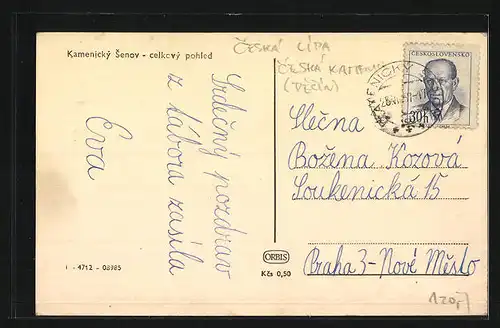 Kamenický Šenov - celkový pohled
ČESKÁ LÍPA
ČESKÁ KAMENICE
(DĚČÍN)
Srdečný pozdrav
z tábora zasílá
Eva
1 - 4712 - 08985
ORBIS
Kčs 0,50
ČESKOSLOVENSKO
30h
KAMENICKÝ
Slečna
Božena Kozová
Soukenická 15
Praha 3 - Nové Město
120,-